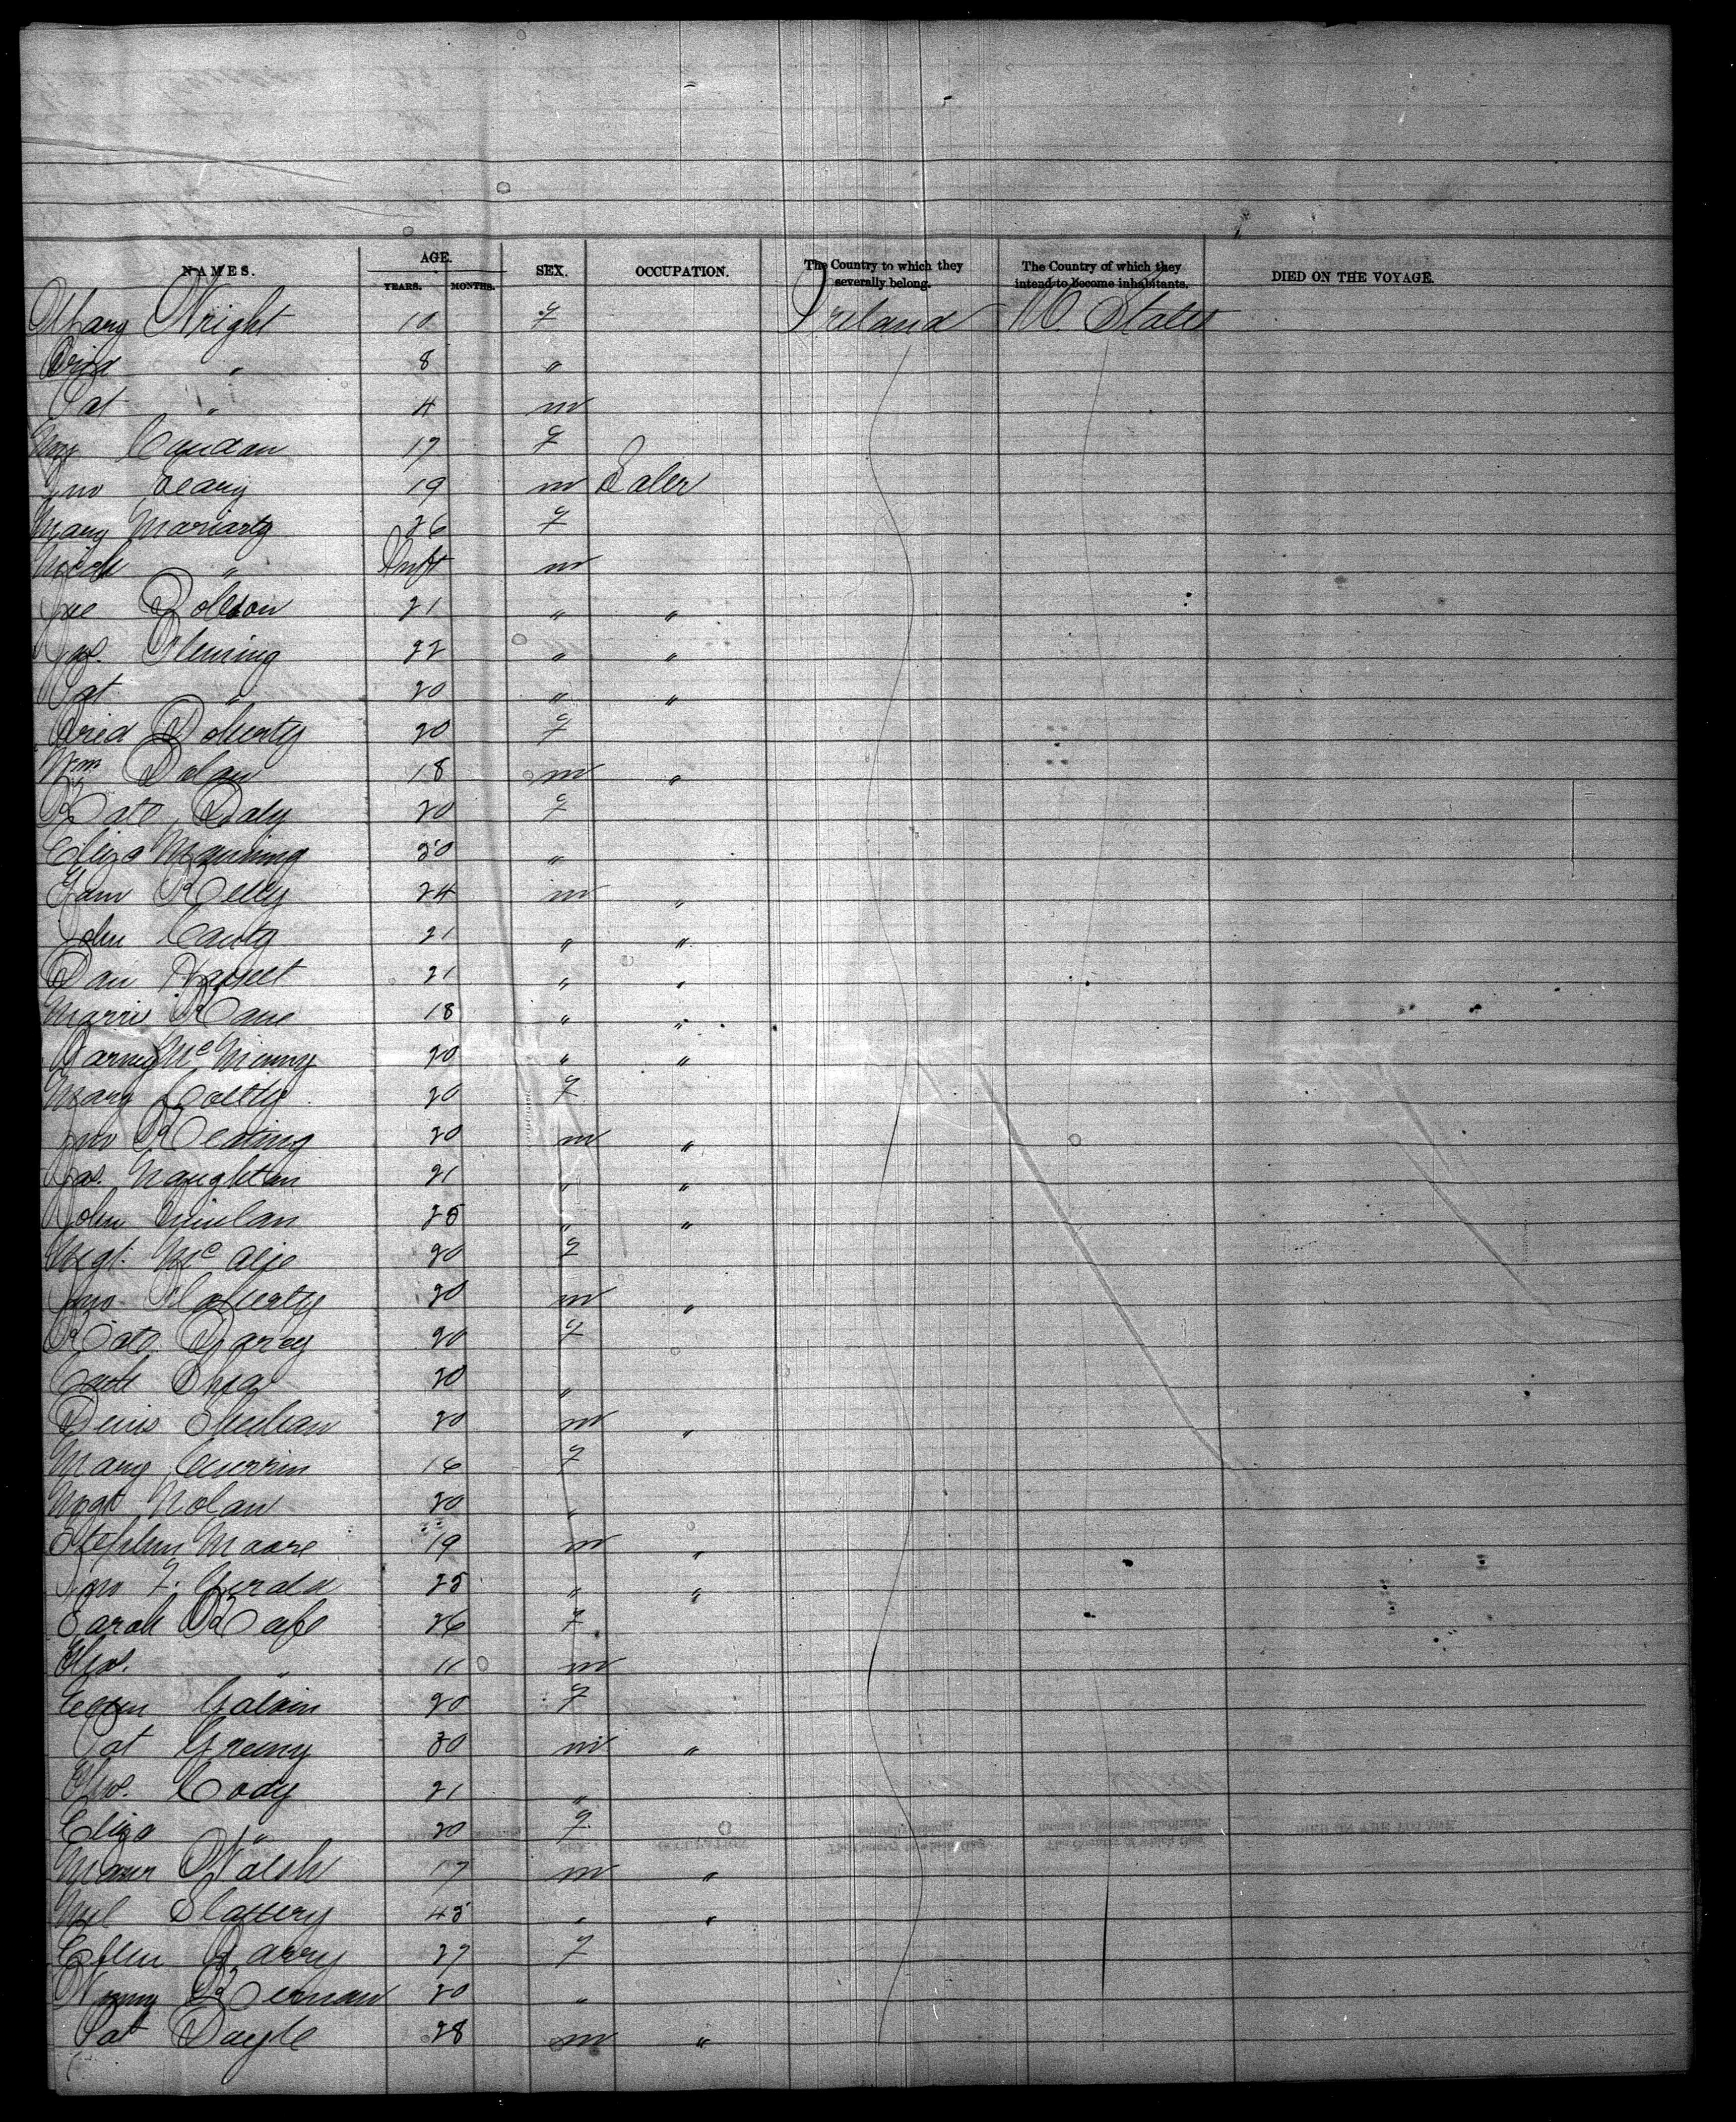 NAMES. AGE. YEARS. MONTHS. SEX. OCCUPATION. The Country to which they severally belong. The Country of which they intend to become inhabitants. DIED ON THE VOYAGE.
Mary Wright 10 f Ireland U. States
Brid " 8 "
Pat " 4 m
Mgt Condan 17 f
Jno Leary 19 m Labr
Mary Moriarty 26 f
Mich " Inft m
Joe 21 " "
Jas. Fleming 22 " "
Pat " 20 " "
Brid Doherty 20 f
Wm Dolan 18 m "
Kate Daly 20 f
Eliza Manning 20 "
Edm Kelly 24 m "
John Canty 21 " "
Dan 21 " "
Morris Kane 18 " "
Barney McMinny 20 " "
Mary 20 f
Jno Keating 20 m "
Jas. Naughton 21 " "
John Quinlan 25 " "
Mgt. 20 f
Jno Flaherty 20 m "
Kate Garvey 20 f
Cath Shea 20 "
Denis Sheehan 20 m "
Mary 16 f
Mgt Nolan 20 "
Stephen Moore 19 m "
Jno F. Gerald 25 " "
Sarah 26 f
Thos. " 11 m
Ellen Galvin 20 f
Pat Greeny 30 m "
Thos. Cody 21 "
Eliza " 20 f
Maur Walsh 17 m "
Ml Slattery 45 " "
Ellen Barry 27 f
Kernan 20 "
Pat Doyle 28 m "